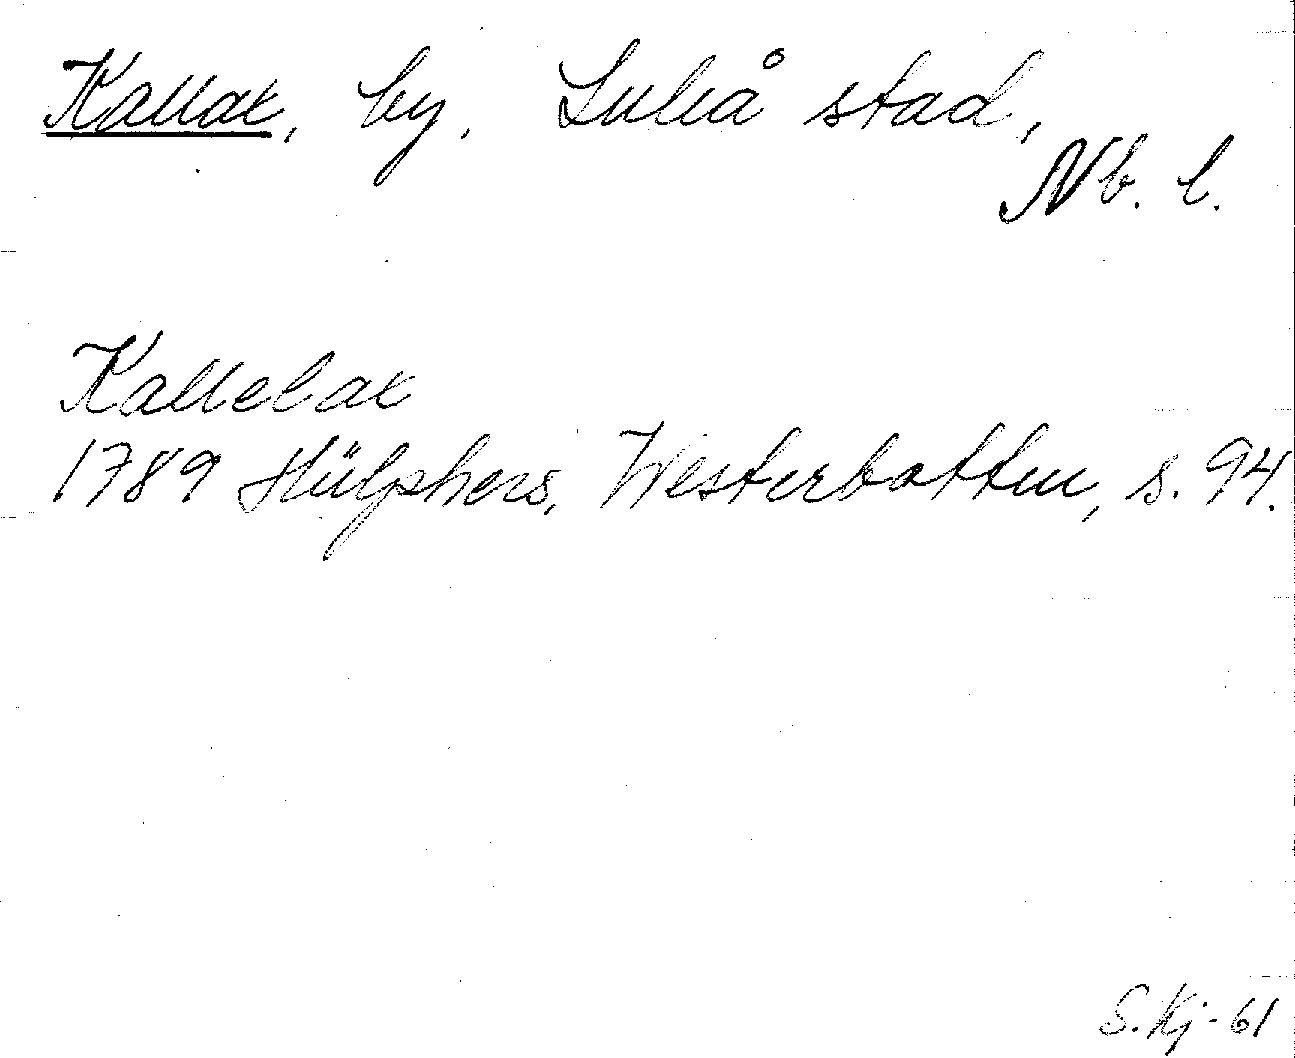 Kallax, by, Luleå stad,
Nb. l.
Kallelax
1789 Hülphers, Westerbotten, s. 94.
S. Kj-61